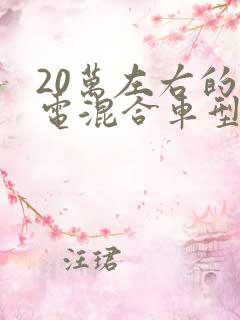 20萬左右的
電混合車型
汪珺